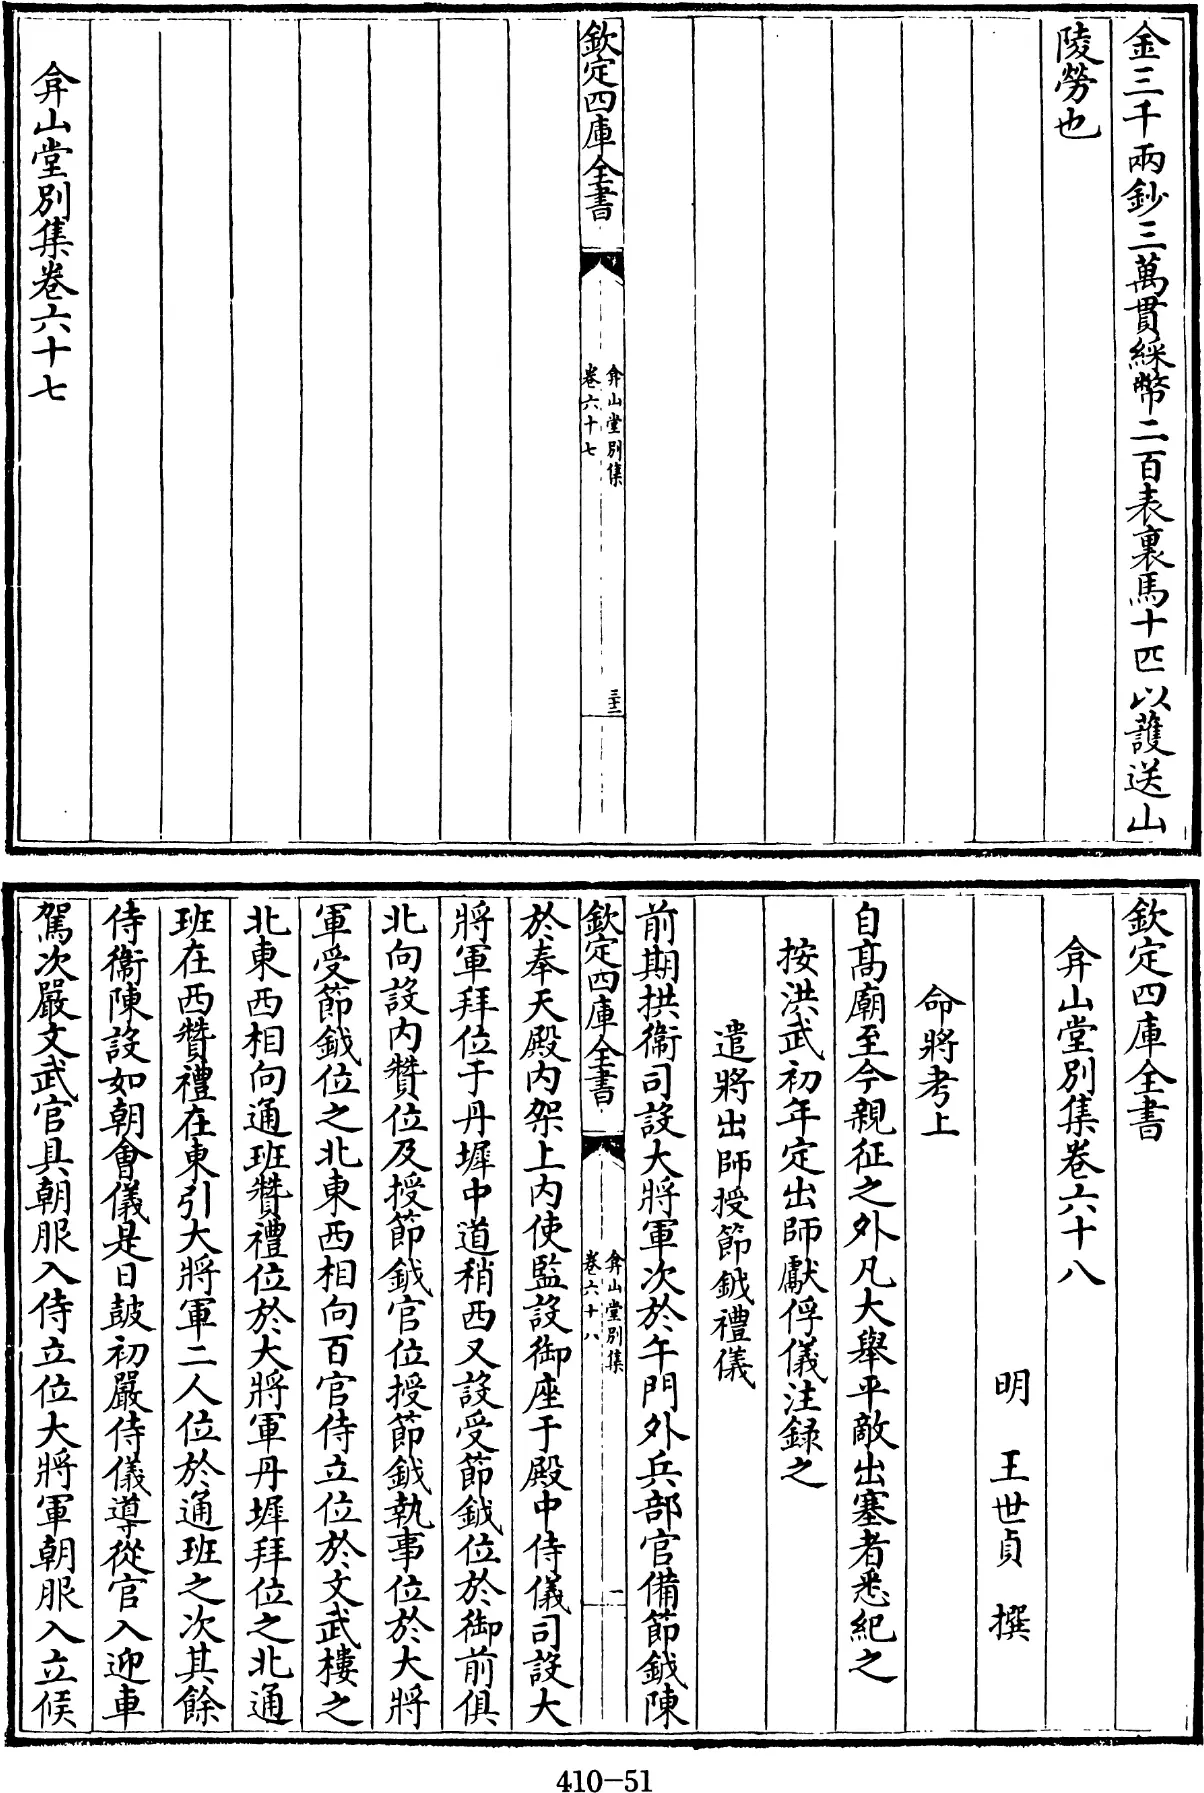 金三千兩鈔三萬貫綵幣二百表裏馬十匹以護送山
陵勞也
欽定四庫全書
弇山堂别集
卷六十七
三十二
弇山堂别集卷六十七
欽定四庫全書
弇山堂别集卷六十八
明 王世貞 撰
命將考上
自髙廟至今親征之外凡大舉平敵出塞者悉紀之
按洪武初年定出師獻俘儀注録之
遣將出師授節鉞禮儀
前期拱衛司設大將軍次於午門外兵部官備節鉞陳
欽定四庫全書
弇山堂别集
卷六十八
一
於奉天殿内架上内使監設御座于殿中侍儀司設大
將軍拜位于丹墀中道稍西又設受節鉞位於御前俱
北向設内贊位及授節鉞官位授節鉞執事位於大將
軍受節鉞位之北東西相向百官侍立位於文武樓之
北東西相向通班贊禮位於大將軍丹墀拜位之北通
班在西贊禮在東引大將軍二人位於通班之次其餘
侍衛陳設如朝會儀是日鼓初嚴侍儀導從官入迎車
駕次嚴文武官具朝服入侍立位大將軍朝服入立候
410-51